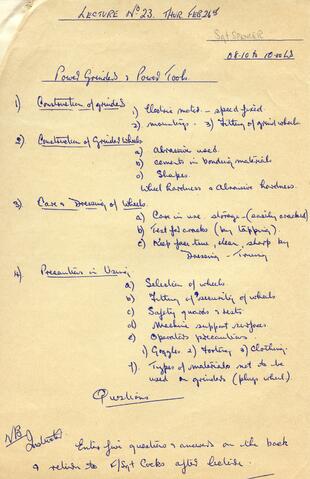 LECTURE No 23. THUR FEB 24th
Sgt SPENCER
08.10 to 10.00 hrs
Power Grinders & Power Tools
1) Construction of grinders
1) Electric motor - speed fixed
2) mountings. - 3) Fitting of grind wheels
2) Construction of Grinder Wheels
a) Abrasive used.
b) cements or bonding materials
c) Shapes.
Wheel hardness & Abrasive hardness.
3) Care & Dressing of Wheels.
a) Care in use. storage - (easily cracked)
b) Test for cracks (by tapping).
c) Keep free true, clean, sharp by
Dressing - Truing
4) Precautions in Using
a) Selection of wheels.
b) Fitting & security of wheels
c) Safety guards & rests
d) Machine support surfaces
e) Operators precautions.
1) Goggles. 2) Footing 3) Clothing.
f) Types of materials not to be
used on grinders (plugs wheel).
Questions
NB
Enter five questions & answers on the back
& return to F/Sgt Cocks after lecture.